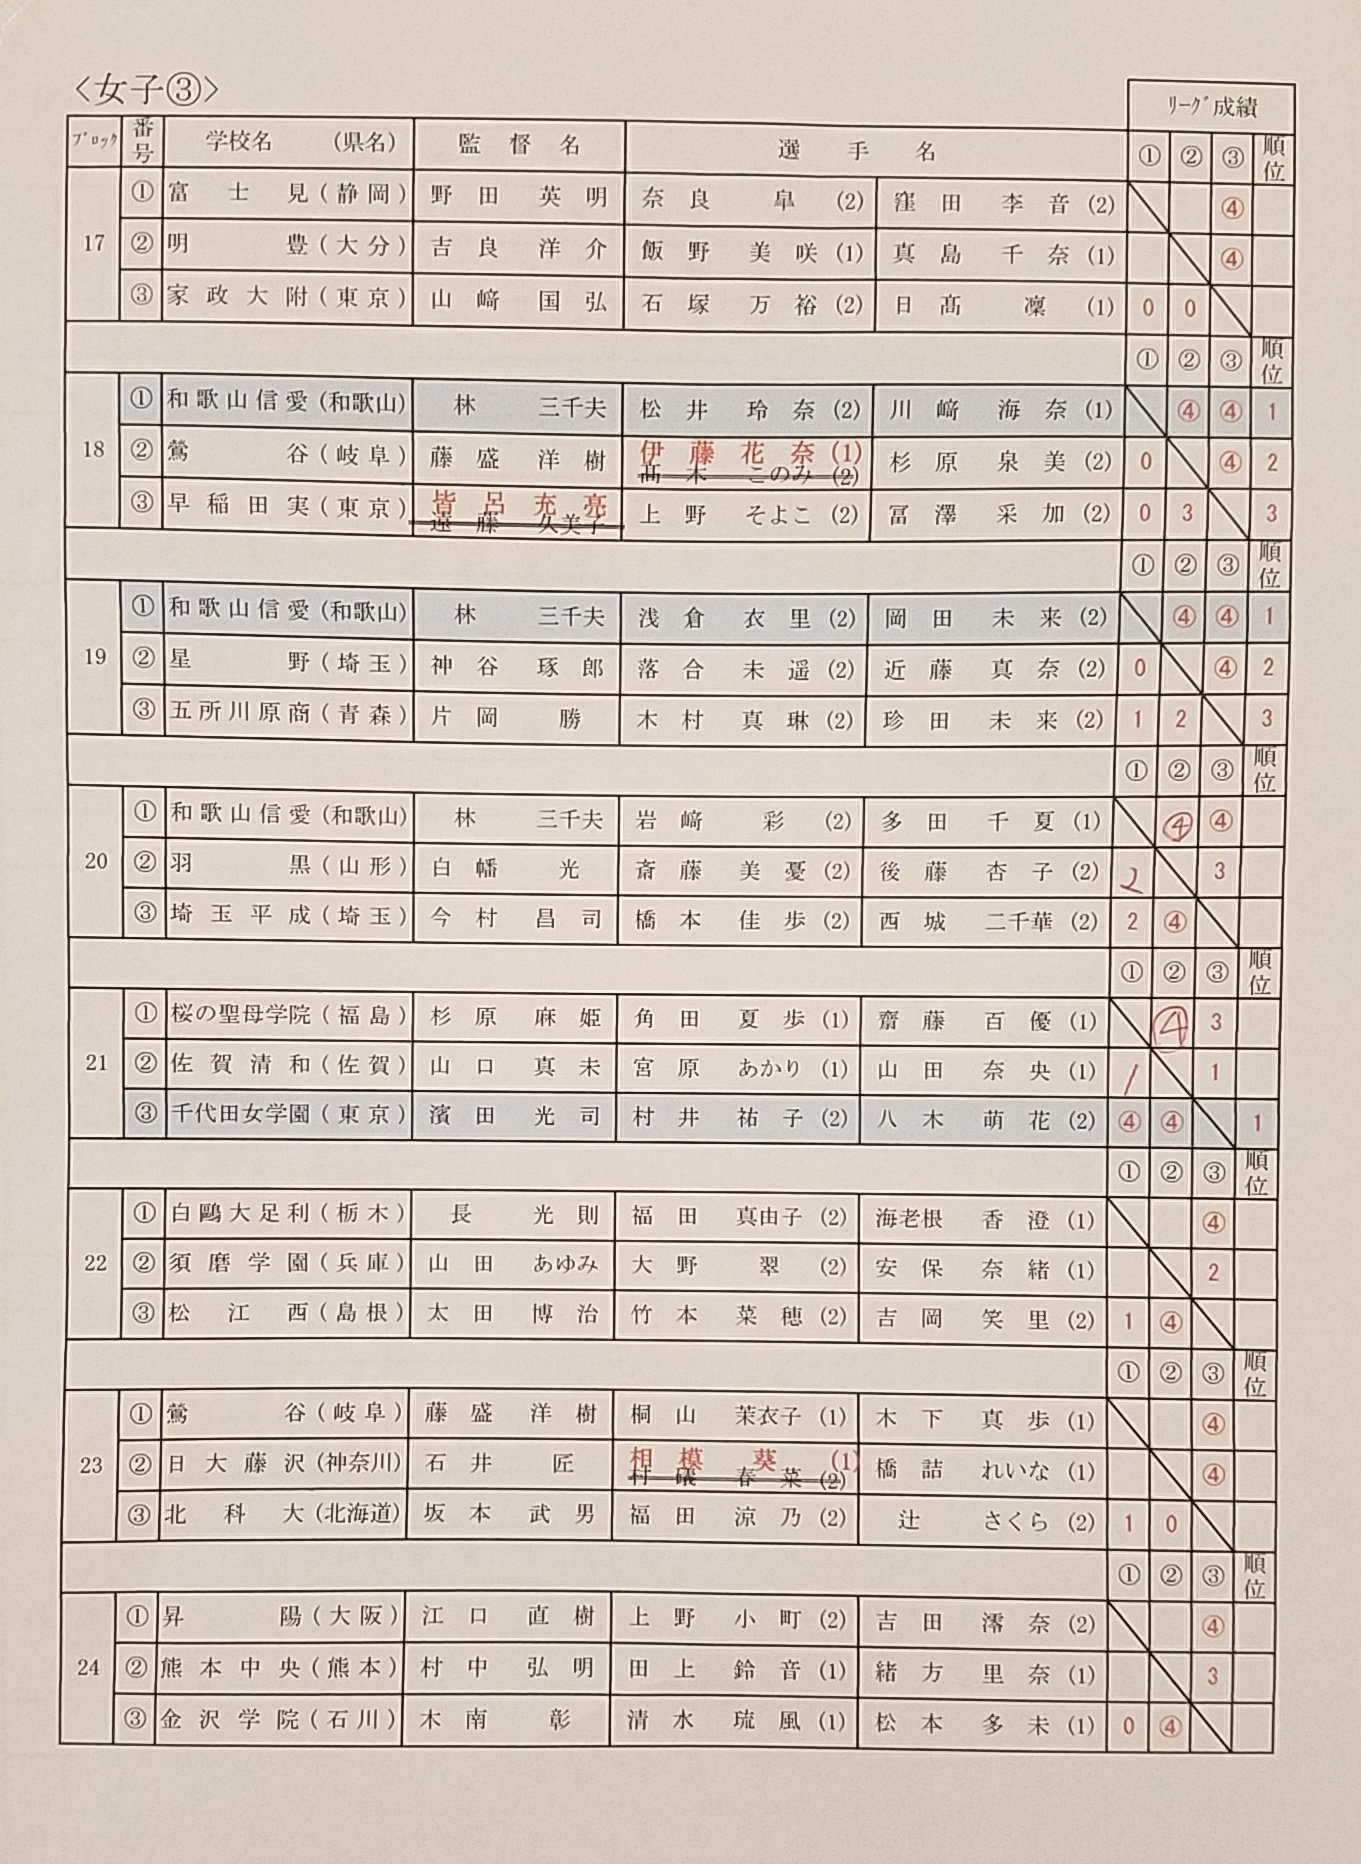 〈女子③〉
ﾘｰｸﾞ成績
ﾌﾞﾛｯｸ 番号 学校名 (県名) 監督名 選手名 ① ② ③ 順位
17
① 富士見(静岡) 野田英明 奈良皐(2) 窪田李音(2) ④
② 明豊(大分) 吉良洋介 飯野美咲(1) 真島千奈(1) ④
③ 家政大附(東京) 山﨑国弘 石塚万裕(2) 日髙凜(1) 0 0
① ② ③ 順位
18
① 和歌山信愛(和歌山) 林三千夫 松井玲奈(2) 川﨑海奈(1) ④ ④ 1
② 鶯谷(岐阜) 藤盛洋樹 伊藤花奈(1) 髙木このみ(2) 杉原泉美(2) 0 ④ 2
③ 早稲田実(東京) 皆呂充亮 遠藤久美子 上野そよこ(2) 冨澤采加(2) 0 3 3
① ② ③ 順位
19
① 和歌山信愛(和歌山) 林三千夫 浅倉衣里(2) 岡田未来(2) ④ ④ 1
② 星野(埼玉) 神谷琢郎 落合未遥(2) 近藤真奈(2) 0 ④ 2
③ 五所川原商(青森) 片岡勝 木村真琳(2) 珍田未来(2) 1 2 3
① ② ③ 順位
20
① 和歌山信愛(和歌山) 林三千夫 岩﨑彩(2) 多田千夏(1) ④ ④
② 羽黒(山形) 白幡光 斎藤美憂(2) 後藤杏子(2) 2 3
③ 埼玉平成(埼玉) 今村昌司 橋本佳歩(2) 西城二千華(2) 2 ④
① ② ③ 順位
21
① 桜の聖母学院(福島) 杉原麻姫 角田夏歩(1) 齋藤百優(1) ④ 3
② 佐賀清和(佐賀) 山口真未 宮原あかり(1) 山田奈央(1) 1 1
③ 千代田女学園(東京) 濱田光司 村井祐子(2) 八木萌花(2) ④ ④ 1
① ② ③ 順位
22
① 白鷗大足利(栃木) 長光則 福田真由子(2) 海老根香澄(1) ④
② 須磨学園(兵庫) 山田あゆみ 大野翠(2) 安保奈緒(1) 2
③ 松江西(島根) 太田博治 竹本菜穂(2) 吉岡笑里(2) 1 ④
① ② ③ 順位
23
① 鶯谷(岐阜) 藤盛洋樹 桐山茉衣子(1) 木下真歩(1) ④
② 日大藤沢(神奈川) 石井匠 相模葵(1) 村礒春菜(2) 橋詰れいな(1) ④
③ 北科大(北海道) 坂本武男 福田涼乃(2) 辻さくら(2) 1 0
① ② ③ 順位
24
① 昇陽(大阪) 江口直樹 上野小町(2) 吉田澪奈(2) ④
② 熊本中央(熊本) 村中弘明 田上鈴音(1) 緒方里奈(1) 3
③ 金沢学院(石川) 木南彰 清水琉風(1) 松本多未(1) 0 ④